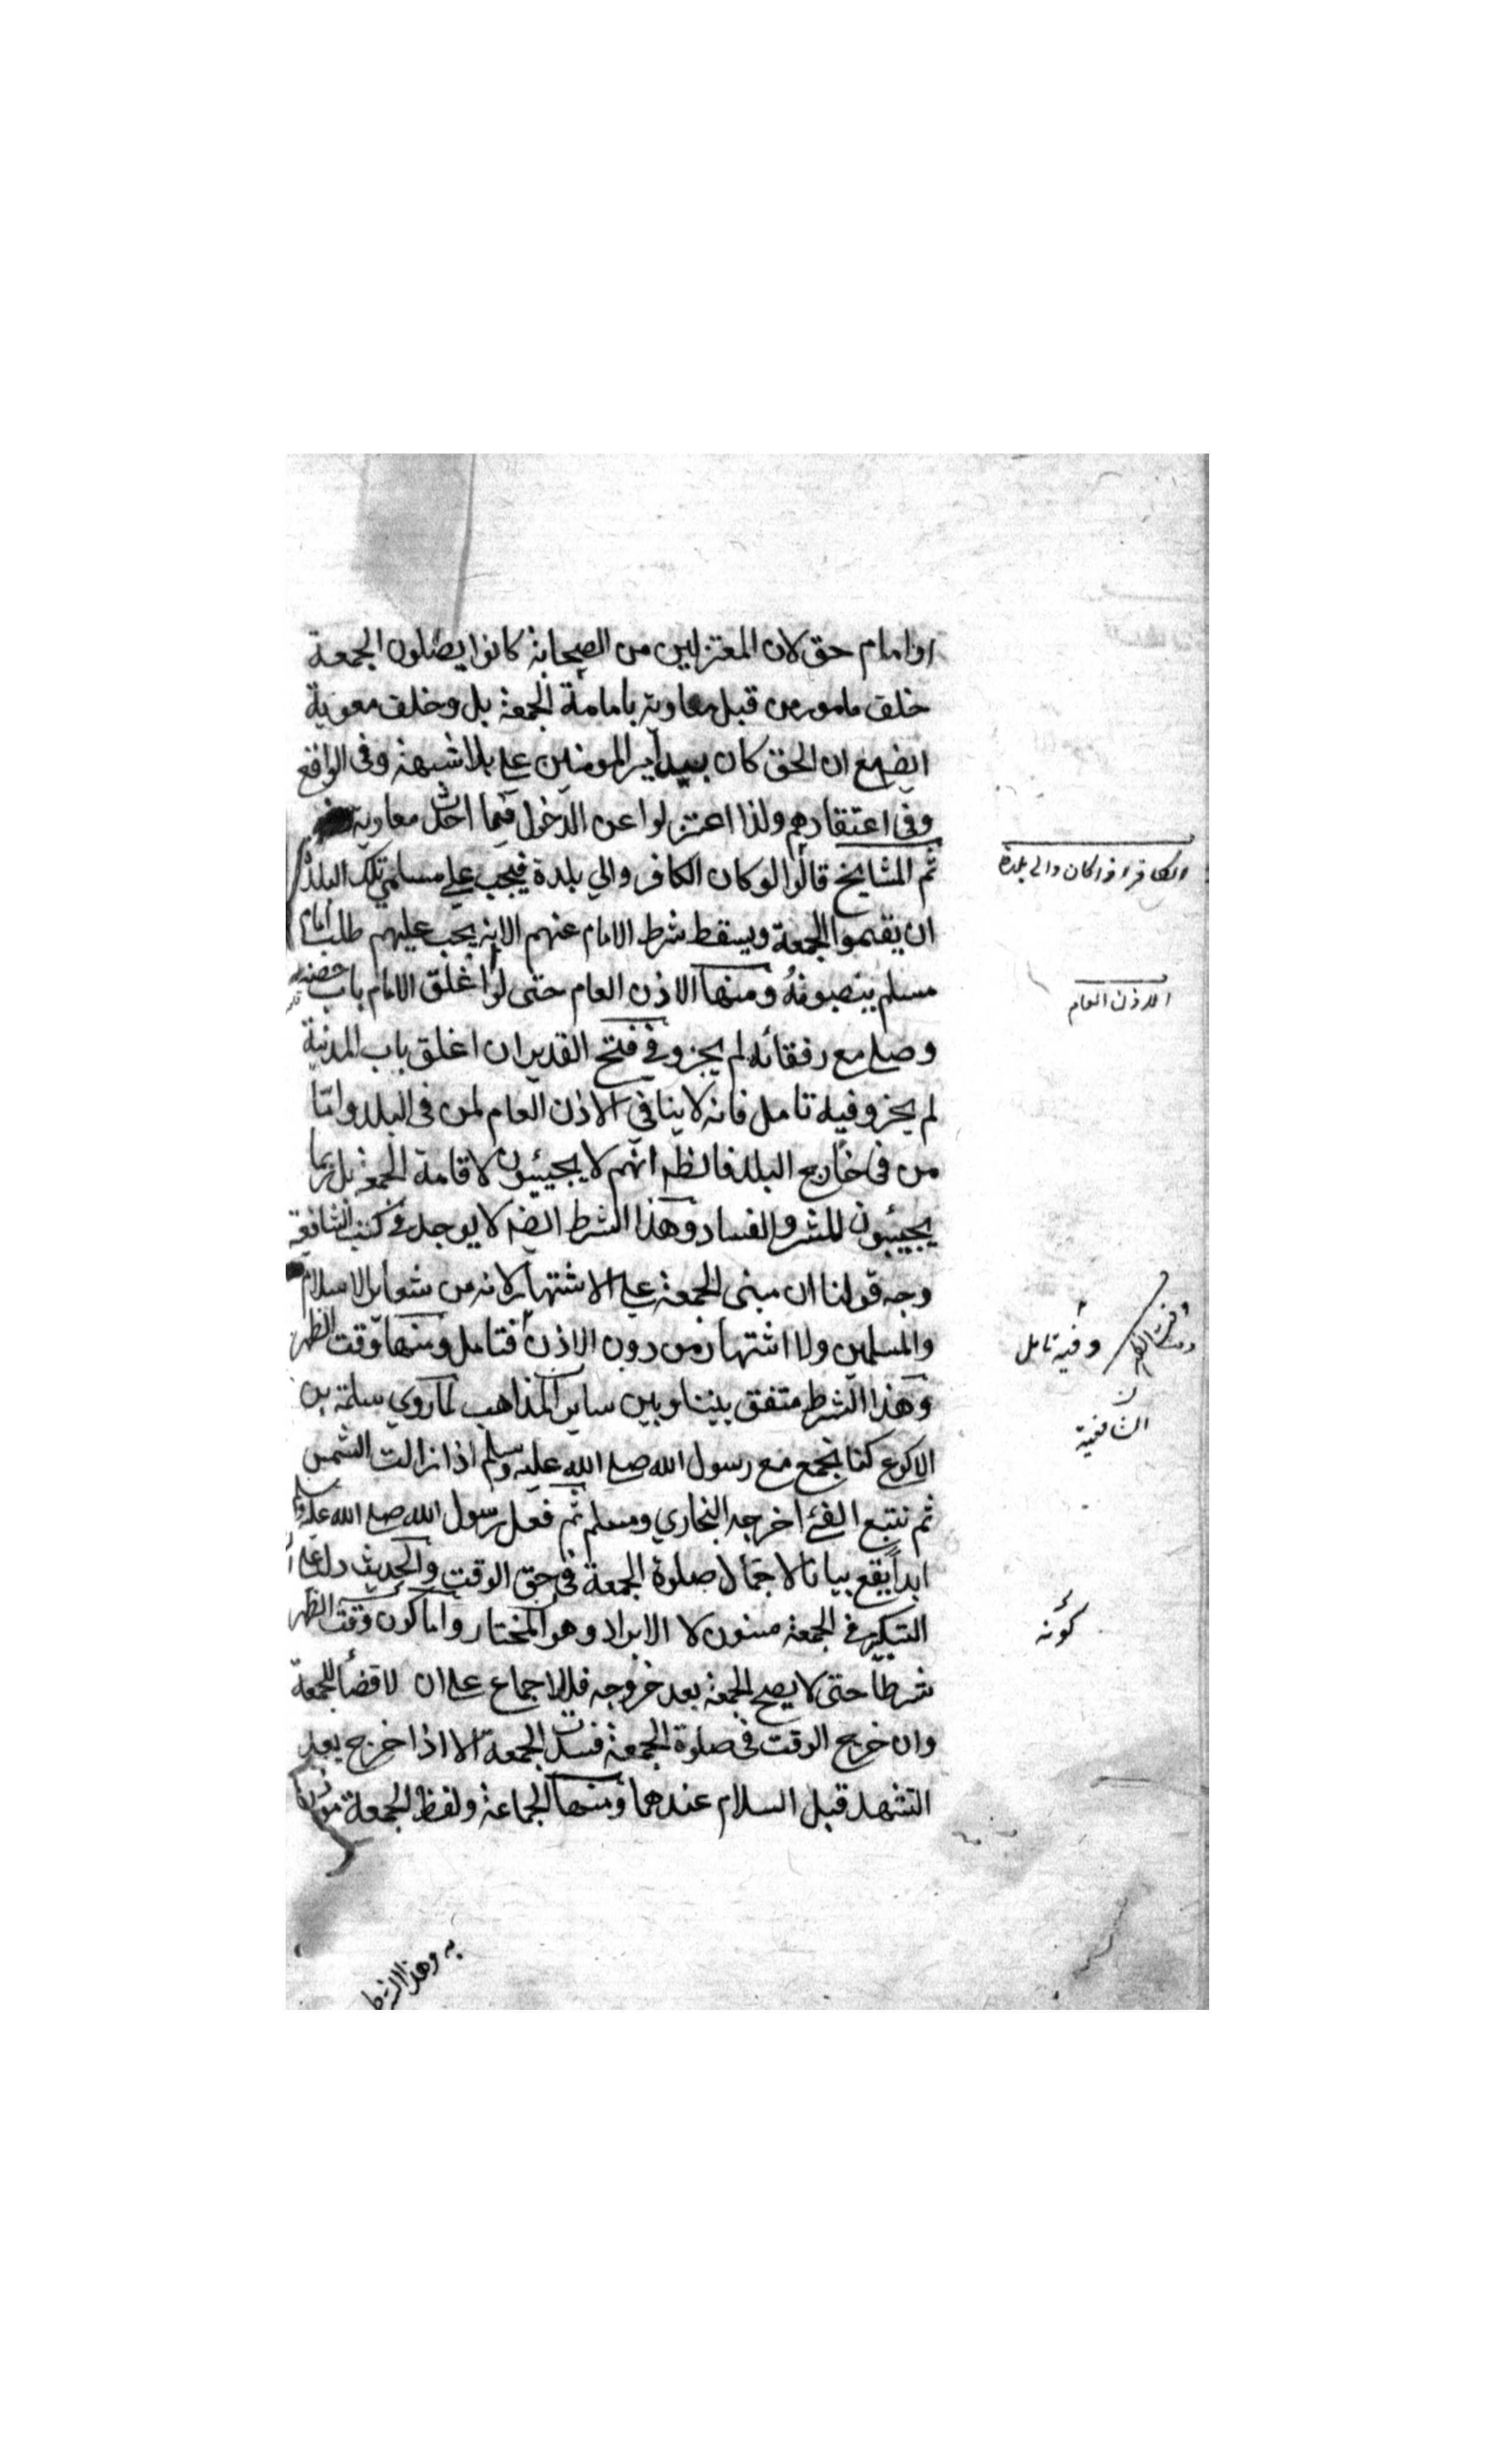 او امام حق لان المعتزلين من الصحابة كانوا يصلون الجمعة
خلف مامور من قبل معاوية بامامة الجمعة بل وخلف معوية
ايضا مع ان الحق كان بيد امير المومنين علي بلا شبهة وفي الواقع
وفي اعتقادهم ولذا اعتزلوا عن الدخول فيما احدث معاوية
ثم المشايخ قالوا لو كان الكافر والي بلدة فيجب علي مسلمي تلك البلدة
ان يقيموا الجمعة ويسقط شرط الامام عنهم الا انه يجب عليهم طلب امام
مسلم ينصبونه ومنها الاذن العام حتى لو اغلق الامام باب حصنه
وصلي مع رفقائه لم يجز وفي فتح القدير ان اغلق باب المدينة
لم يجز وفيه تامل فانه لا ينافي الاذن العام لمن في البلد واما
من في خارج البلد فالظ انهم لا يجيئون لاقامة الجمعة بل ربما
يجيئون للشر والفساد وهذا الشرط ايضا لا يوجد في كتب الشافعية
وجه قولنا ان مبنى الجمعة علي الاشتهار لانه من شعاير الاسلام
والمسلمين ولا اشتهار من دون الاذن فتامل ومنها وقت الظهر
وهذا الشرط متفق بيننا وبين ساير المذاهب لما روي سلمة بن
الاكوع كنا نجمع مع رسول الله صلي الله عليه وسلم اذا زالت الشمس
ثم نتبع الفئ اخرجه البخاري ومسلم ثم فعل رسول الله صلي الله عليه وسلم
ابدا يقع بيانا لاجمال صلوة الجمعة في حق الوقت والحديث دل علي
التبكير في الجمعة مسنون لا الابراد وهو المختار واما كون وقت الظهر
شرطا حتى لا يصح الجمعة بعد خروجه فللاجماع علي ان لا قضأ للجمعة
وان خرج الوقت في صلوة الجمعة فسدت الجمعة الا اذا خرج بعد
التشهد قبل السلام عندهما ومنها الجماعة ولفظ الجمعة
به وهذا الشرط
الكافر اذا كان والي بلدة
الاذن العام
وفيه تامل
الشافعية
كونه